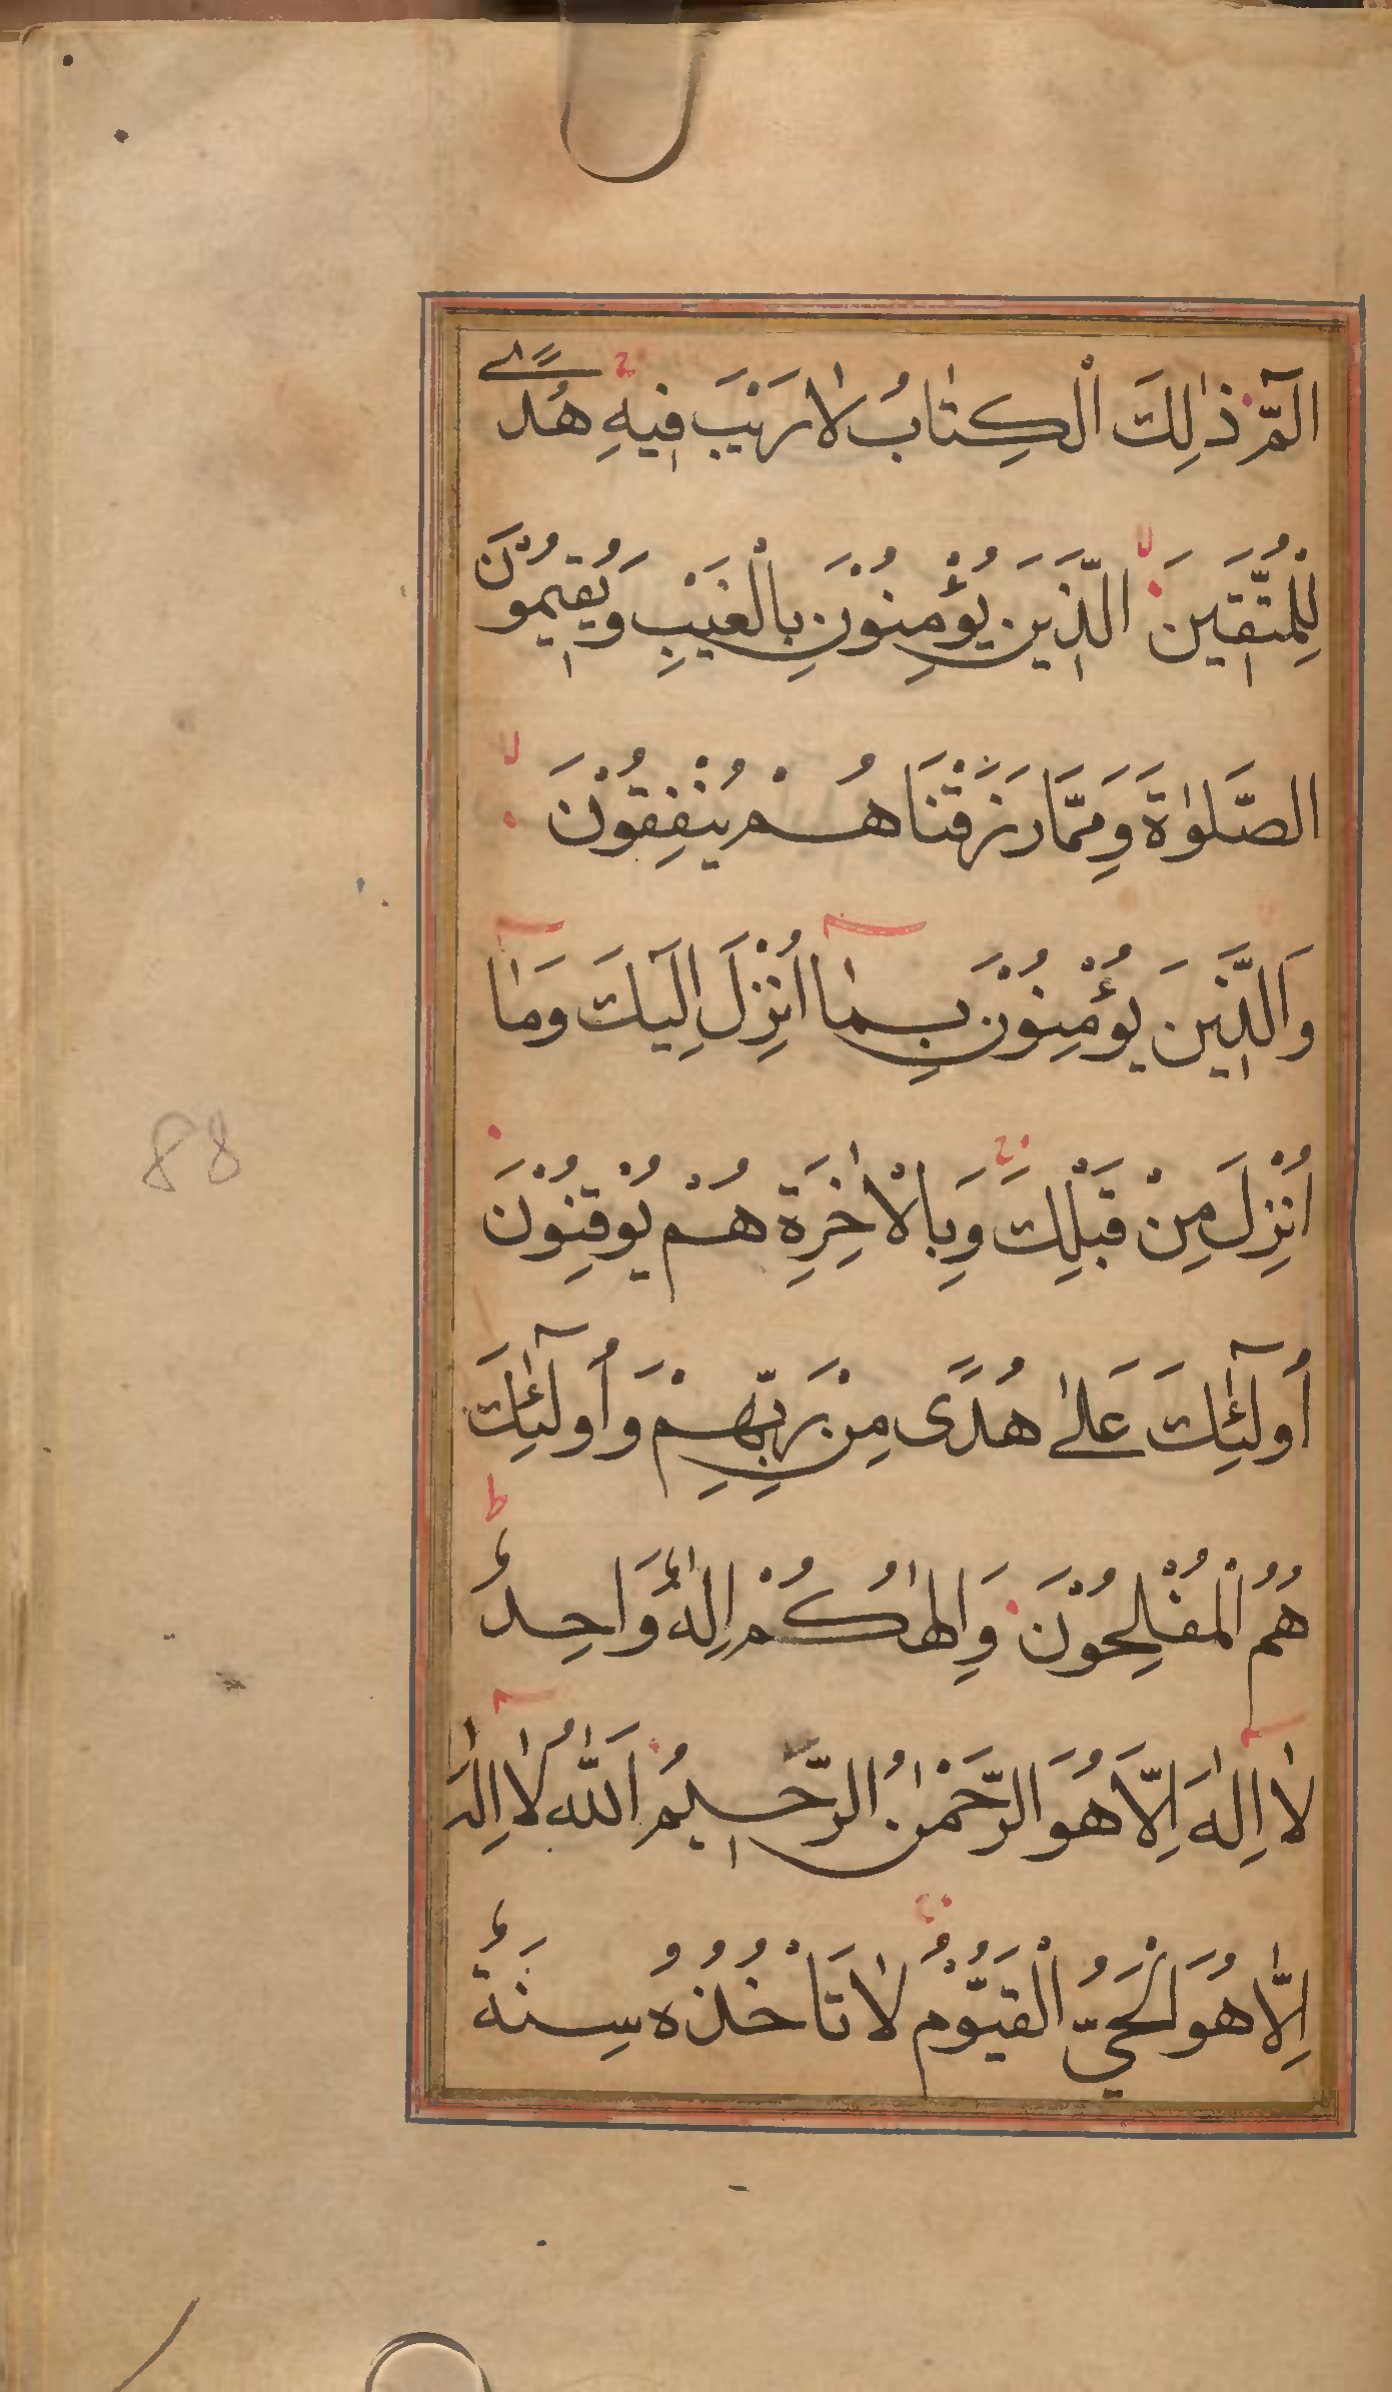 الٓمّٓ ذٰلِكَ الْكِتٰابُ لاٰ رَيْبَ فٖيهِ هُدًى
لِلْمُتَّقٖينَ الَّذٖينَ يُؤْمِنُوْنَ بِالْغَيْبِ وَيُقٖيمُوْنَ
الصَّلٰوةَ وَمِمَّا رَزَقْنَا هُمْ يُنْفِقُوْنَ
وَالَّذٖينَ يُؤْمِنُوْنَ بِمٰا اُنْزِلَ اِلَيْكَ وَمٰا
اُنْزِلَ مِنْ قَبْلِكَ وَبِالْاٰخِرَةِ هُمْ يُوْقِنُوْنَ
اُولٰٓئِكَ عَلٰى هُدًى مِنْ رَبِّهِمْ وَاُولٰٓئِكَ
هُمُ الْمُفْلِحُوْنَ وَاِلٰهُكُمْ اِلٰهٌ وَاحِدٌ
لاٰ اِلٰهَ اِلَّا هُوَ الرَّحْمٰنُ الرَّحٖيمُ اَللّٰهُ لاٰ اِلٰهَ
اِلَّا هُوَ الْحَيُّ الْقَيُّوْمُ لاٰ تَاْخُذُهُ سِنَةٌ
88